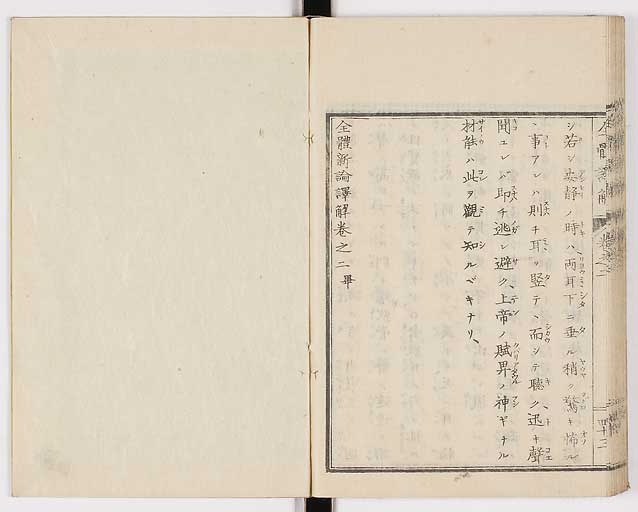 シ若シ安静ノ時ハ、両耳下ニ垂ル稍ク驚キ怖ル
ヽ事アレハ則チ耳ヲ竪テ、而シテ聽ク迅キ聲
聞ユレバ即チ逃レ避ク、上帝ノ賦畀ノ神ギナル
材能ハ此ヲ觀テ知ルベキナリ、
全體新論譯解卷之二 畢